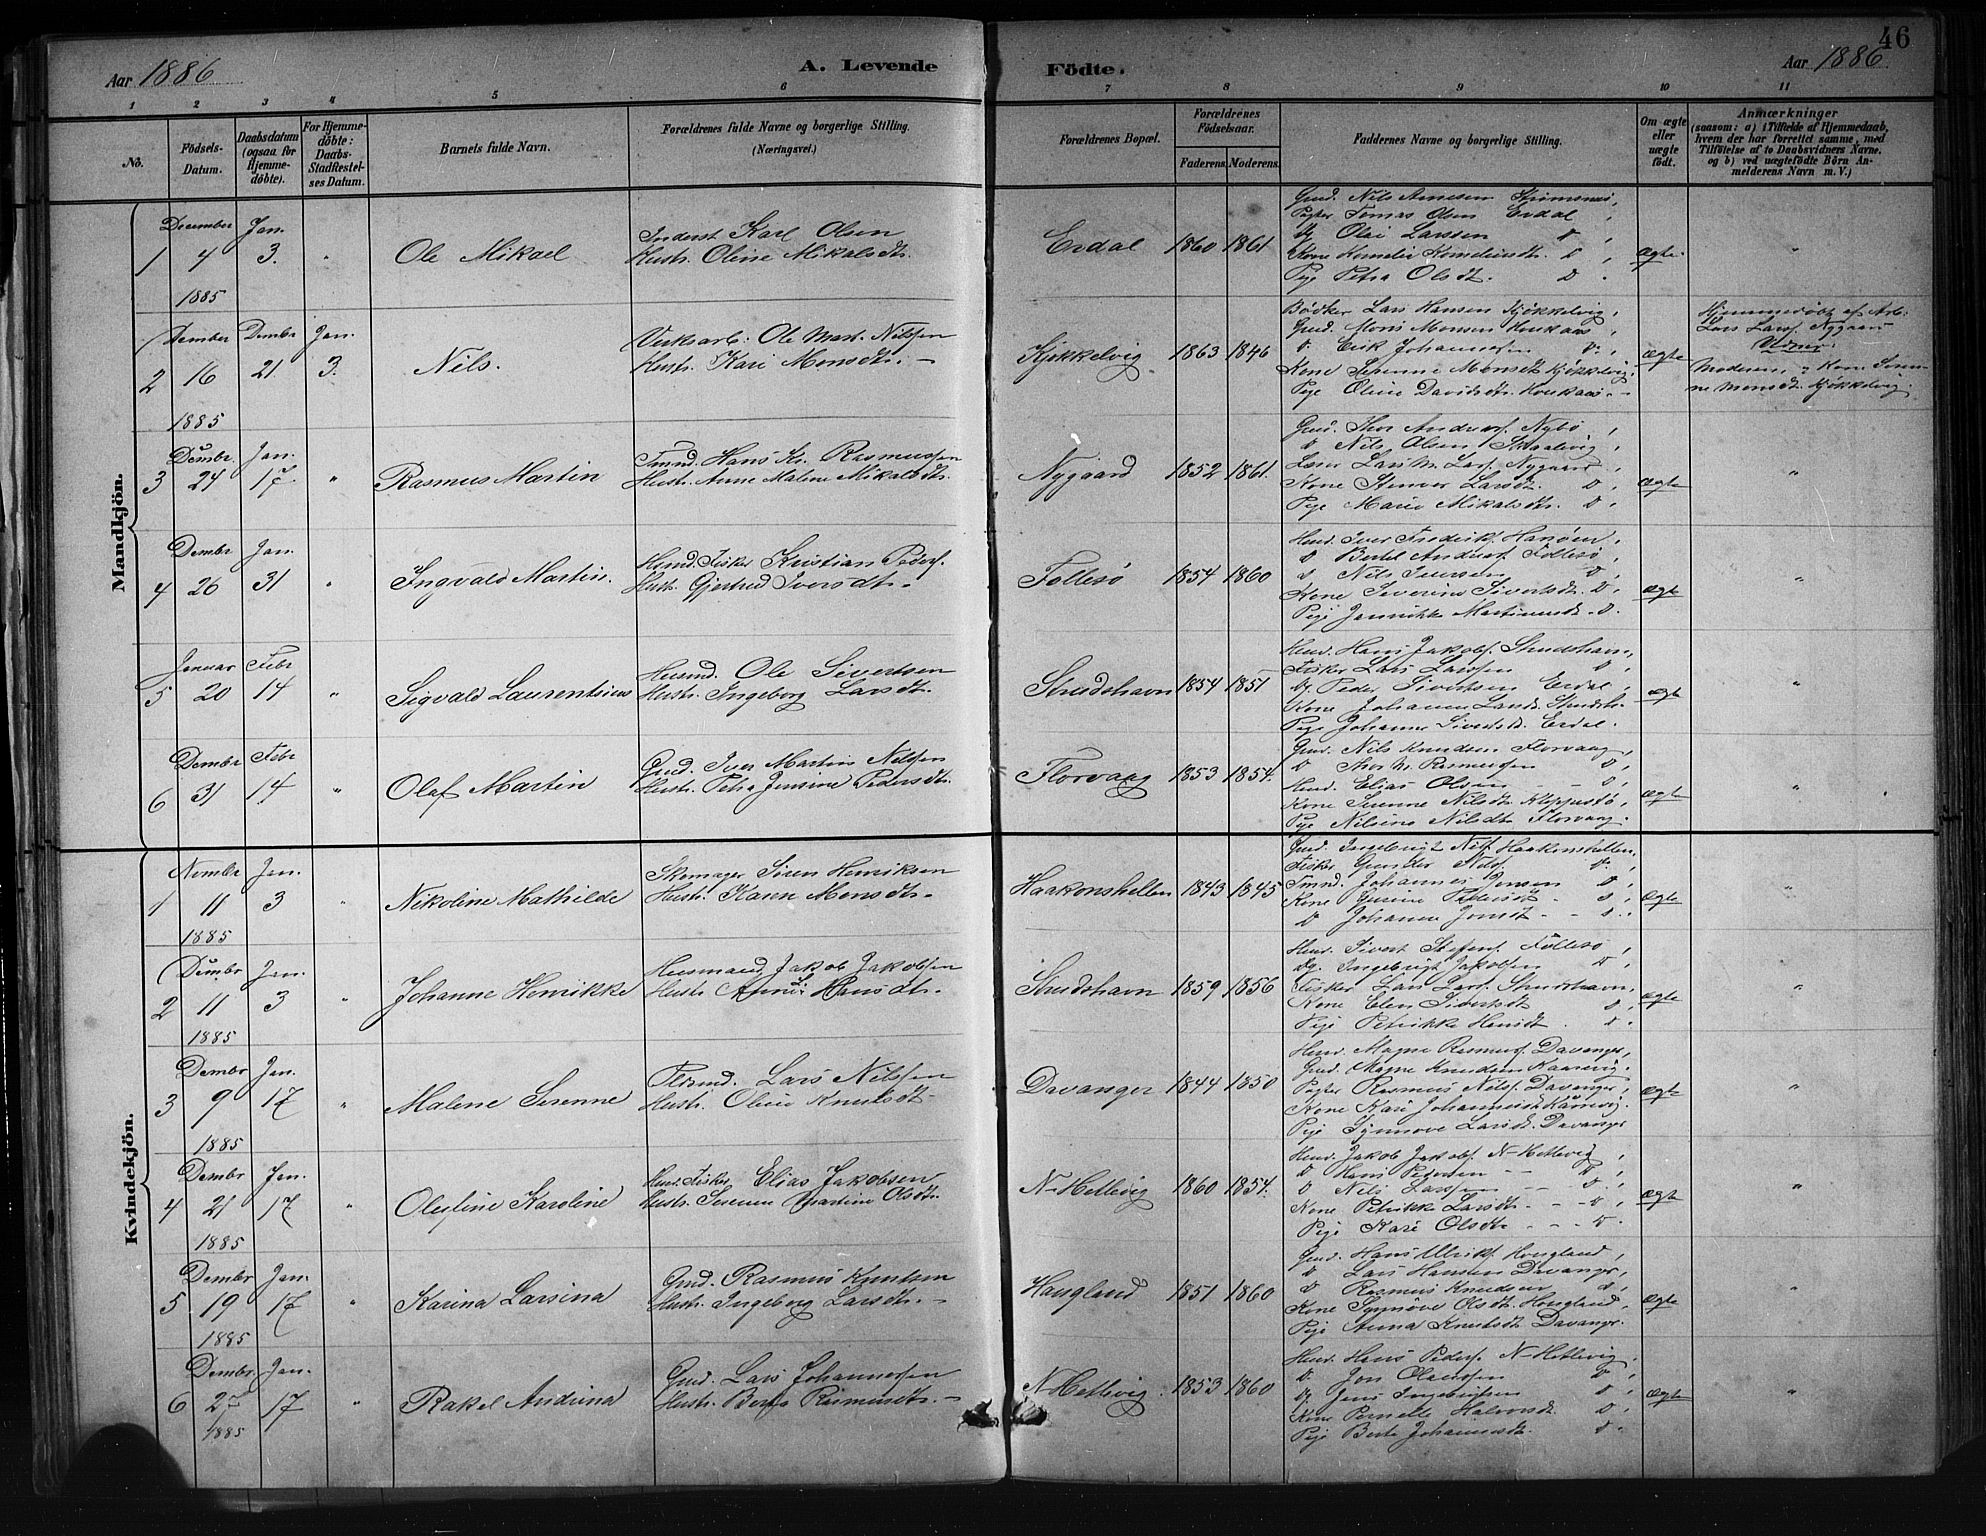 46
Aar 1886
A. Levende
Födte.
Aar 1886
1 2 3 4 5 6 7 8 9 10 11
No.
Födsels-Datum.
Daabsdatum (ogsaa for Hjemme-döbte).
For Hjemme-döbte: Daabs-Stadfæstel-ses Datum.
Barnets fulde Navn.
Forældrenes fulde Navne og borgerlige Stilling. (Næringsvei.)
Forældrenes Bopæl.
Forældrenes Födselsaar.
Faderens. Moderens.
Faddernes Navne og borgerlige Stilling.
Om ægte eller uægte födt.
Anmærkninger
(saasom: a) i Tilfælde af Hjemmedaab, hvem der har forrettet samme, med Tilföielse af to Daabsvidners Navne, og b) ved uægtefödte Börn An-melderens Navn m. V.)
Mandkjön.
1 December 4 1885 Jan. 3. " Ole Mikael
Inderst Karl Olsen
Hustr. Oline Mikalsdtr.
Erdal 1860 1861
Gmd. Nils Arnesen Strømsnes,
Pagter Tomas Olsen Erdal,
Ug Olai Larssen D,
Kone Kornelia Korneliusdt. D,
Pig Petra Olsdt. D
Ægte. "
2 Dember 16 1885 Dembr 21 Jan. 3. Nils.
Verksarb: Ole Mart. Nilssen
Hustr. Kari Monsdtr. -
Kjøkkelvig 1863 1846
Bødker Lars Hansen Kjøkkelvig,
Gmd. Mons Monsen
D. Erik Johannessen D.,
Kone Serenne Monsdt Kjøkkelvig,
Pige Oline Davidsdtr.
ægte
Hjemmedøbt af Arb:
Lars Larss. Nygaard
Vidner:
Moderen, og Kone Seren-
ne Monsdt. Kjøkkelvig.
3 Dembr. 24 Jan. 17 " Rasmus Martin
Tmnd. Hans Kr. Rasmussen
Hustr. Anne Malene Mikalsdtr.
Nygaard 1852 1861.
Gmd. Thor Anders. Nybø,
D Nils Olsen Skaalevig,
Lars M. Lars. Nygaard,
Kone Larsdt. D,
Pige Marie Mikalsdtr. D.
ægte "
4 Dembr 26 Jan. 31 " Ingvald Martin.
Hmd. Fisker Kristian Peders.
Hustr. Gjertrud Iversdtr. -
Follesø 1854 1860
Hmd. Iver Fredrik. Hanøen,
D Bertel Anders. Follesø,
D Nils Iversen D,
Kone Severine Sivertsdt. D,
Pige Jannikke Martinusdt. D.
ægte "
5 Januar 20 Febr 14 " Sigvald Laurentius
Husmd. Ole Sivertsen
Hustr. Ingeborg Larsdt.
Strudshavn 1854 1851
Hmd. Hans Jakobs. Strudshavn,
Fisker Lars Larssen D,
Ug. Peder Sivertsen Erdal,
Kone Johanne Larsdt. Strudsh.
Pige Johanne Sivertsdt. Erdal.
ægt "
6 Dembr 31 Febr 14 " Olaf Martin
Gmd. Iver Martin Nilssen
Hustr. Petra Jensine Pedersdtr.
Florvaag 1853 1854.
Gmd. Nils Knudsen Florvaag,
D Thor Kr. Rasmussen D,
Hmd. Elias Olsen - - D,
Kone Serenne Nilsdt Kleppestø,
Pige Nilsine Nilsdt Florvaag.
Ægte "
Kvindekjön.
1 Nvembr 11 1885 Jan. 3 " Nikoline Mathilde
Skomager Sören Henriksen
Hustr. Karen Monsdtr.
Haakonshellen 1843 1845
Gmd. Ingebrigt Nils. Haakonshellen,
Fisker Gunder Nils. D.
Tmnd. Johannes Jonsen D,
Kone Gurine Pedersdt - D,
D Johanne Jonsdt - - D.
Ægte "
2 Dembr 11 1885 Jan. 3 " Johanne Henrikke
Husmand Jakob Jakobsen
Hustr Anna Hansdtr.
Strudshavn 1859 1856
Hmd. Sivert Stefens. Follesø,
Ug. Ingebrigt Jakobsen D,
Fisker Lars Lars. Strudshavn,
Kone Elen Sivertsdt D,
Pige Petrikke Hansdt. D.
ægte "
3 Dembr 9 1885 Jan. 17 " Malene Serenne
Lars Nilssen
Hustr. Oline Knudsdt
Davanger 1844 1850
Hmd. Magne Rasmus. Davanger,
Gmd. Magne Knudsen Kaarevig.
Pagter Rasmus Nils. Davanger,
Kone Kari Johannesdt Kårevig.
Pige Synnøve Larsdt. Davanger
ægte "
4 Dembr 21 1885 Jan. 17 " Olefine Karoline
Hmd. Fisker Elias Jakobsen
Hustr. Serenne Martine Olsdt.
N-Hetlevig 1860 1854.
Hmd. Jakob Jakobs. N-Hetlevig,
D Hans Pedersen - - D,
D Nils Larssen - - D,
Kone Petrikke Larsdt. - - D,
Pige Kari Olsdt - - - D.
Ægte "
5 Dembr 19 1885 Jan. 17 " Karina Larsina
Gmd. Rasmus Knutsen
Hustr. Ingeborg Larsdt. -
Haugland 1851 1860
Gmd. Hans Ulriks. Hougland,
D Lars Hansen Davanger,
D Rasmus Knudsen D,
Kone Synnøve Olsdt. Hougland,
Pige Anna Knutsdt Davanger.
Ægte "
6 Dembr. 25 1885 Jan. 17 " Rakel Andrina
Gmd. Lars Johannessen
Hustr. Berta Rasmusdt. -
N-Hetlevig. 1853 1860
Hmd. Hans Peders. N-Hetlevig.
D. Jon Olaussen D,
Ug Jens Ingebrigtsen D,
Kone Pernelle Halvorsdt. D,
Pige Berte Johannesdt. D.
ægte "